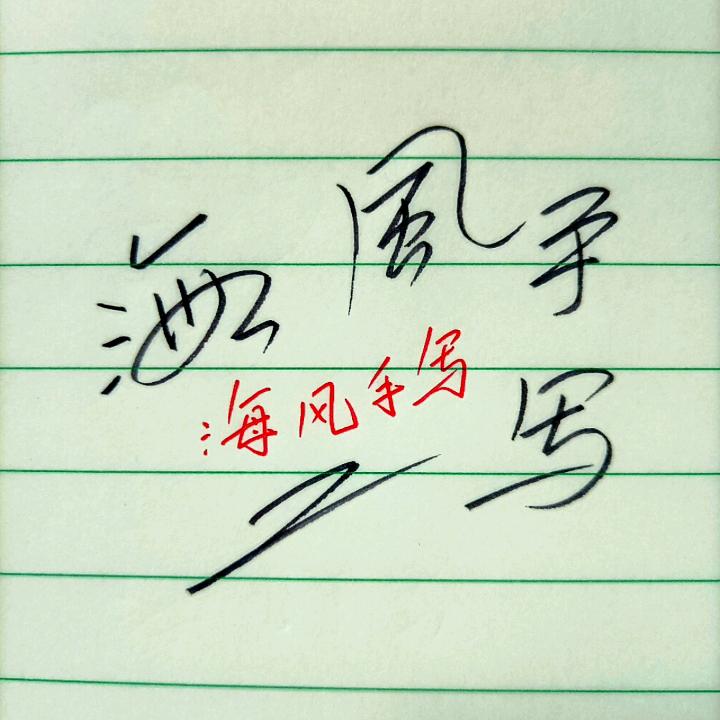 海風手写
海风手写